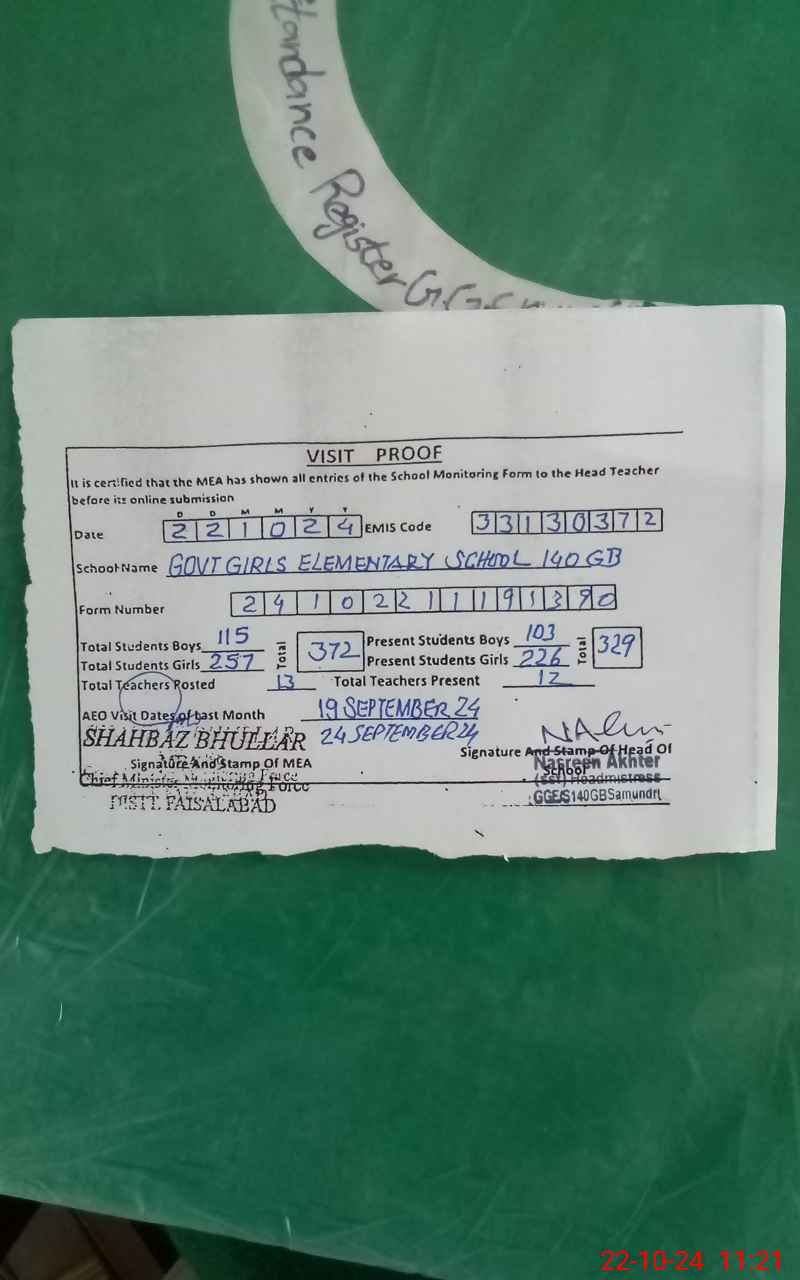 Attendance Register GGES
VISIT PROOF
It is certified that the MEA has shown all entries of the School Monitoring Form to the Head Teacher
before its online submission
D D M M Y Y
Date 2 2 1 0 2 4 EMIS Code 3 3 1 3 0 3 7 2
School Name GOVT GIRLS ELEMENTARY SCHOOL 140 GB
Form Number 2 4 1 0 2 2 1 1 1 9 1 3 9 0
Total Students Boys 115 Total 372 Present Students Boys 103 Total 329
Total Students Girls 257 Present Students Girls 226
Total Teachers Posted 13 Total Teachers Present 12
AEO Visit Dates of Last Month 19 SEPTEMBER 24
SHAHBAZ BHULLAR 24 SEPTEMBER 24
Signature And Stamp Of MEA Signature And Stamp Of Head Of
School
Nasreen Akhter
Chief Minister Monitoring Force (sst) Headmistress
DISTT. FAISALABAD GGE/S140GBSamundri
22-10-24 11:21